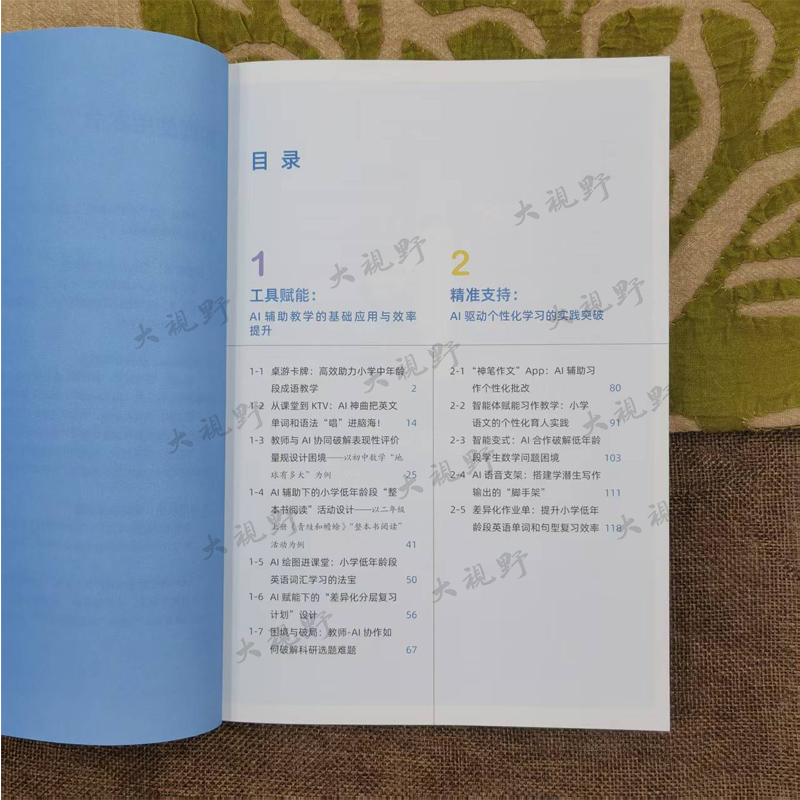 目 录
1
工具赋能：
AI 辅助教学的基础应用与效率
提升
1-1 桌游卡牌：高效助力小学中年龄
段成语教学 2
1-2 从课堂到 KTV：AI 神曲把英文
单词和语法“唱”进脑海！ 14
1-3 教师与 AI 协同破解表现性评价
量规设计困境——以初中数学“地
球有多大”为例 25
1-4 AI 辅助下的小学低年龄段“整
本书阅读”活动设计——以二年级
上册《青蛙和蟾蜍》“整本书阅读”
活动为例 41
1-5 AI 绘图进课堂：小学低年龄段
英语词汇学习的法宝 50
1-6 AI 赋能下的“差异化分层复习
计划”设计 56
1-7 困境与破局：教师-AI 协作如
何破解科研选题难题 67
2
精准支持：
AI 驱动个性化学习的实践突破
2-1 “神笔作文”App：AI 辅助习
作个性化批改 80
2-2 智能体赋能习作教学：小学
语文的个性化育人实践 91
2-3 智能变式：AI 合作破解低年龄
段学生数学问题困境 103
2-4 AI 语音支架：搭建学潜生写作
输出的“脚手架” 111
2-5 差异化作业单：提升小学低年
龄段英语单词和句型复习效率 118
大視野
大視野
大視野
大視野
大視野
大視野
大視野
大視野
大視野